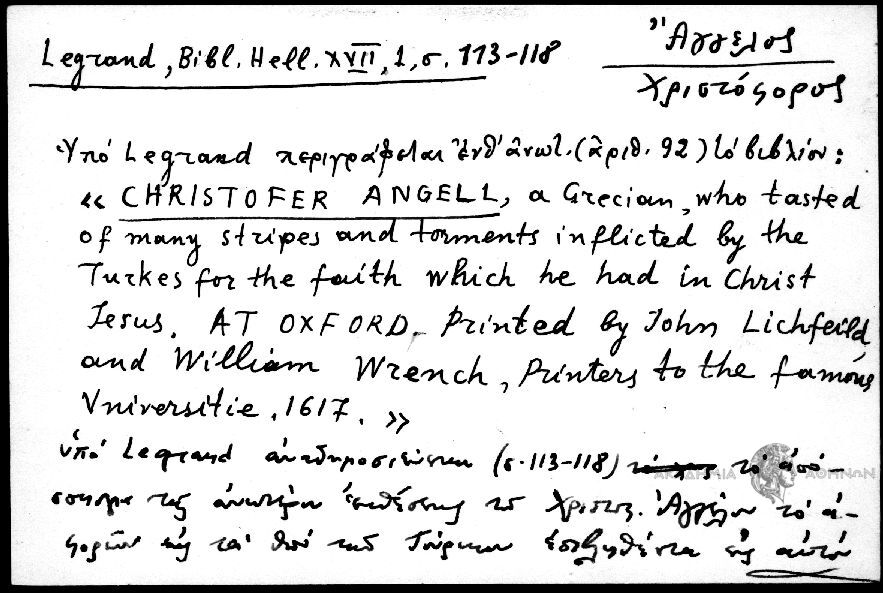 Legrand, Bibl. Hell. XVII, 1, σ. 113-118
Ἄγγελος
Χριστόφορος
Ὑπό Legrand περιγράφεται ἐνθ' ἀνωτ. (ἀριθ. 92) τό βιβλίον:
« CHRISTOFER ANGELL, a Grecian, who tasted
of many stripes and torments inflicted by the
Turkes for the faith which he had in Christ
Jesus. AT OXFORD. Printed by John Lichfeild
and William Wrench, Printers to the famous
Vniversitie. 1617. »
ὑπό Legrand ἀναδημοσιεύεται (σ. 113-118) τό ἀπό-
σπασμα τῆς ἀνωτέρω ἐκθέσεως τοῦ Χριστοφ. Ἀγγέλου τό ἀ-
φορῶν εἰς τά ὑπό τῶν Τούρκων ἐπιβληθέντα εἰς αὐτόν
ΑΚΑΔΗΜΙΑ ΑΘΗΝΩΝ